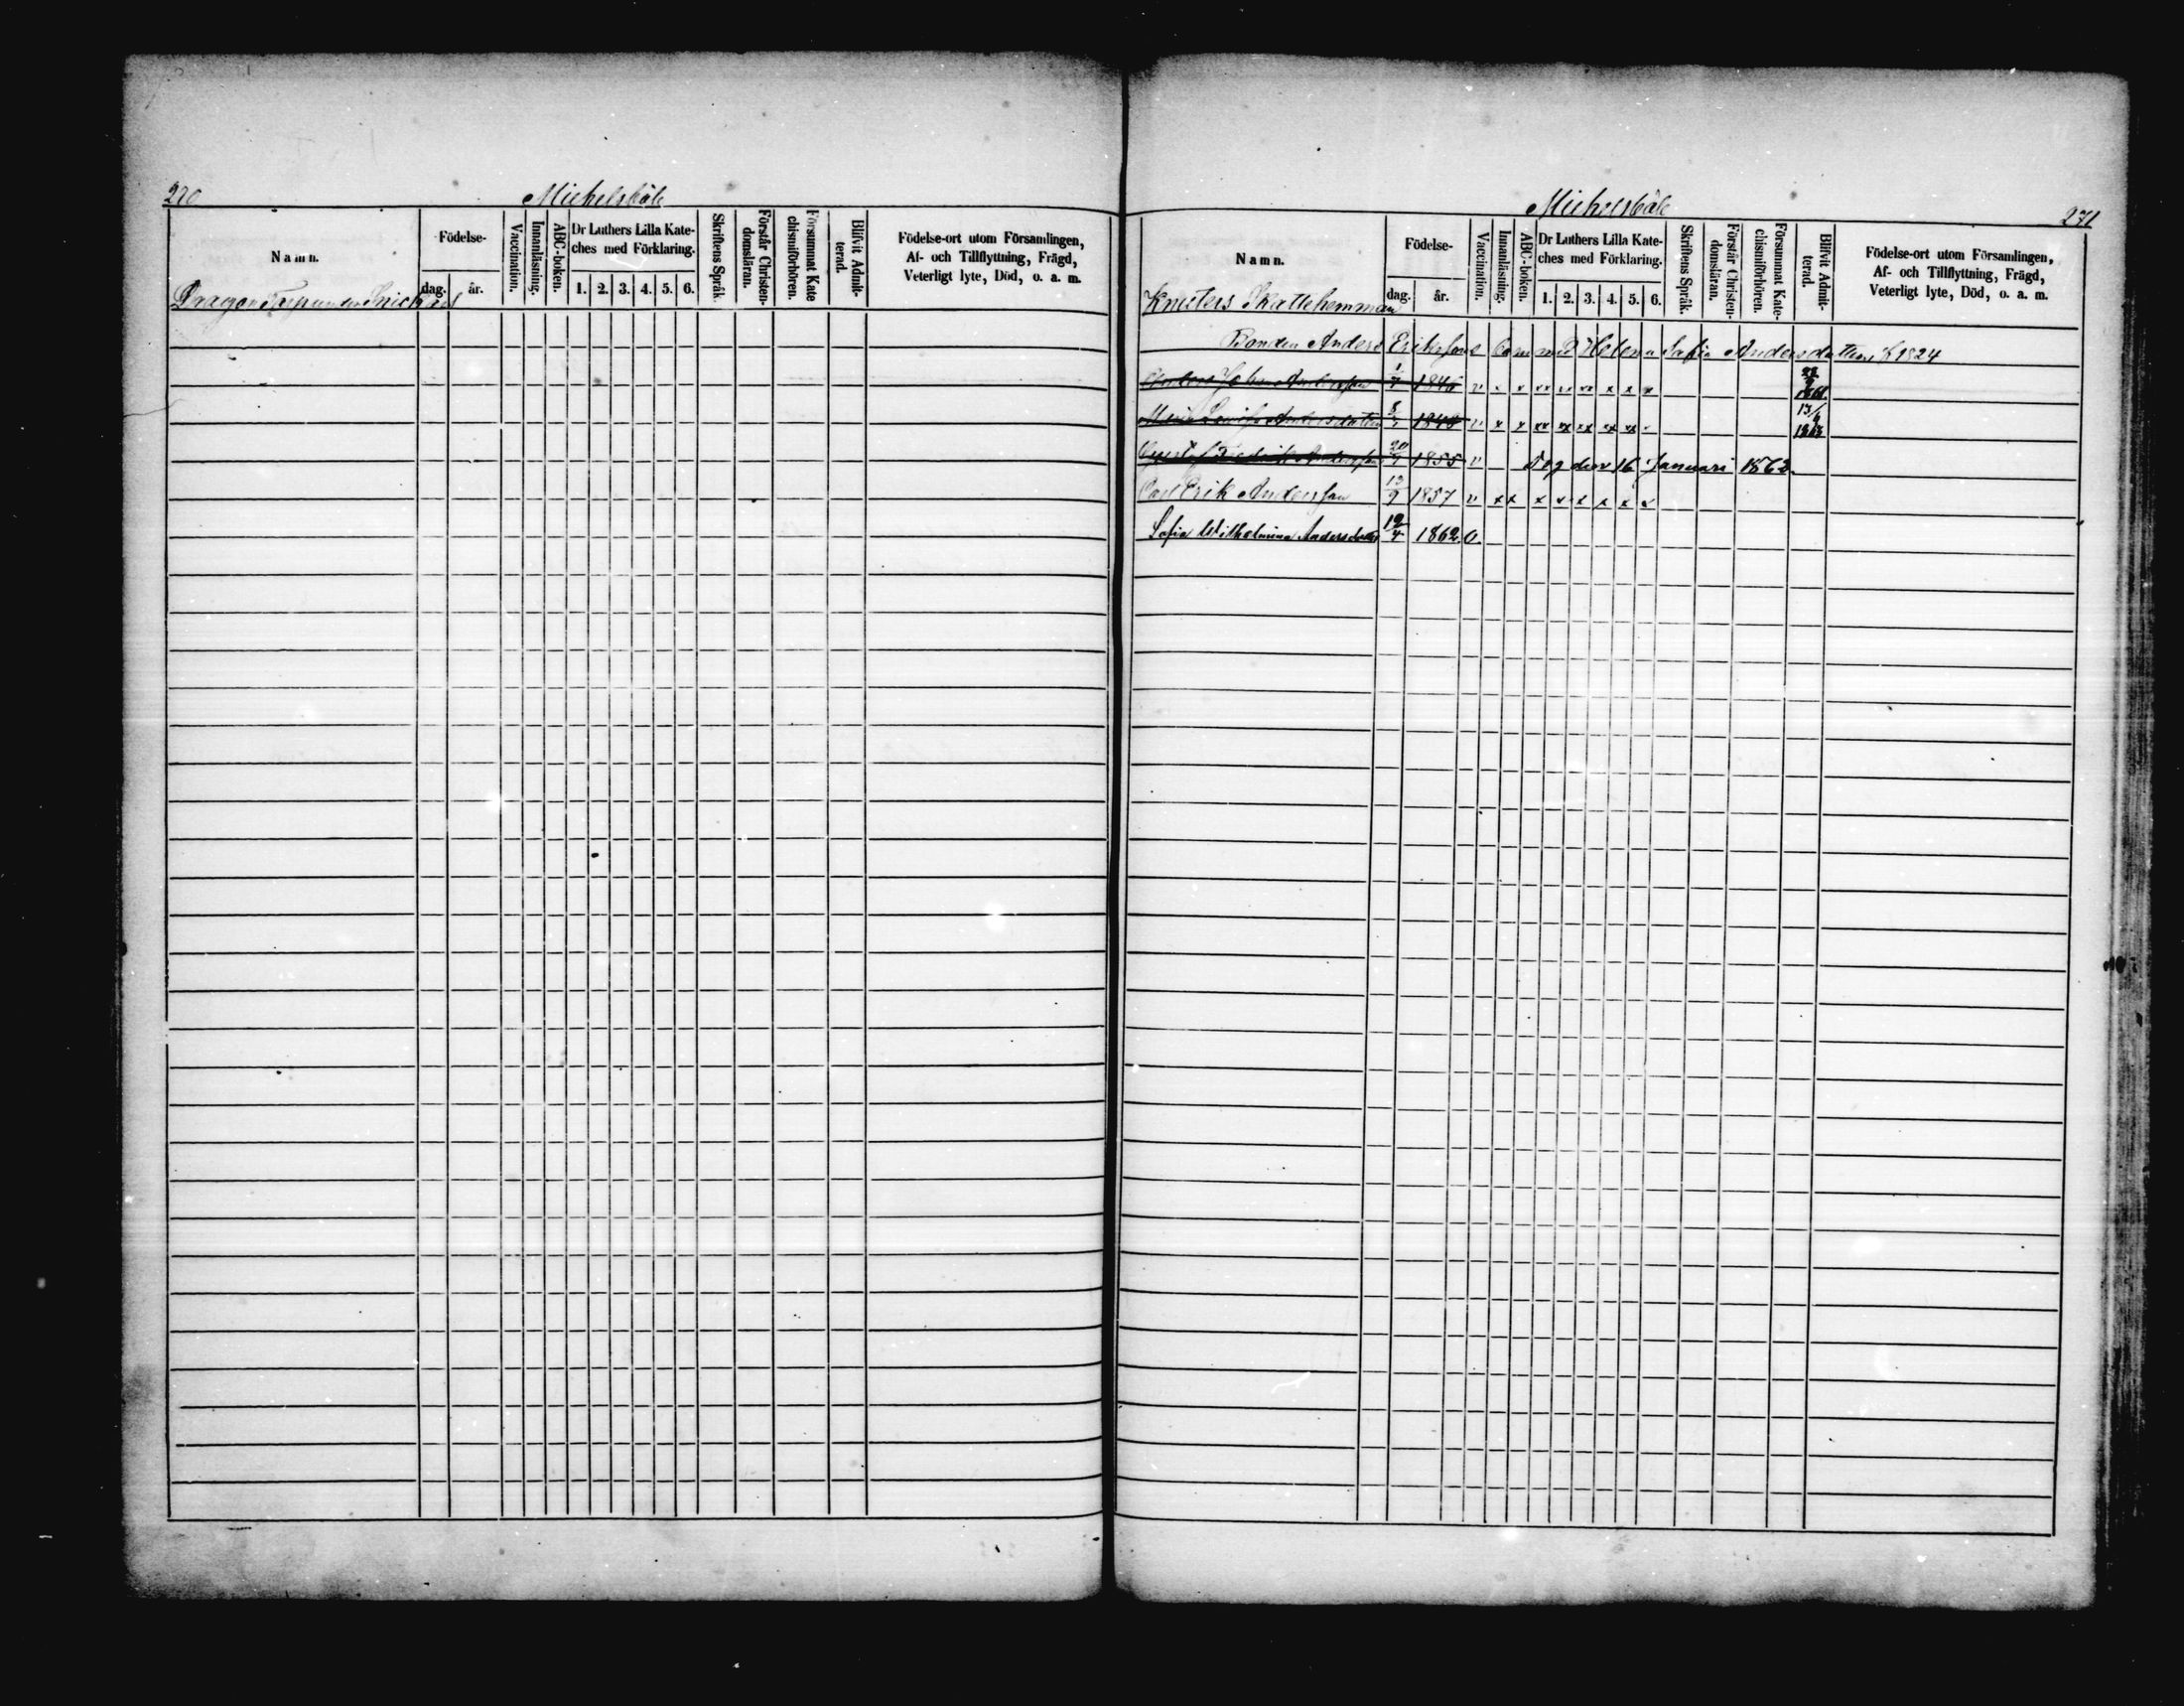 270
Michelsböle
Namn.
Födelse-
dag.
år.
Vaccination.
Innanläsning.
ABC-boken.
Dr Luthers Lilla Kate-
ches med Förklaring.
1. 2. 3. 4. 5. 6.
Skriftens Språk.
Förstår Christen-
domsläran.
Försummat Kate
chismiförhören.
Blifvit Admit-
terad.
Födelse-ort utom Församlingen,
Af- och Tillflyttning, Frägd,
Veterligt lyte, Död, o. a. m.
Dragon Torp under Snickars
Michelsböle
271
Namn.
Födelse-
dag.
år.
Vaccination.
Innanläsning.
ABC-boken.
Dr Luthers Lilla Kate-
ches med Förklaring.
1. 2. 3. 4. 5. 6.
Skriftens Språk.
Förstår Christen-
domsläran.
Försummat Kate-
chismiförhören.
Blifvit Admit-
terad.
Födelse-ort utom Församlingen,
Af- och Tillflyttning, Frägd,
Veterligt lyte, Död, o. a. m.
Knuters Skattehemman
Bonden Anders Erikssons barn med Helena Sofia Andersdotter f 1824
Anders Johan Andersson 1845 v x x xx xx xx x x x
Maria Lovisa Andersdotter 1848 v x x xx xx xx xx xx 13/6 1863
Gustaf Fredrik Andersson 1855 v Dog den 16 Januari 1862
Carl Erik Andersson 13/9 1857 v xx x x x x x x
Sofia Wilhelmina Andersdotter 12/4 1862 v.